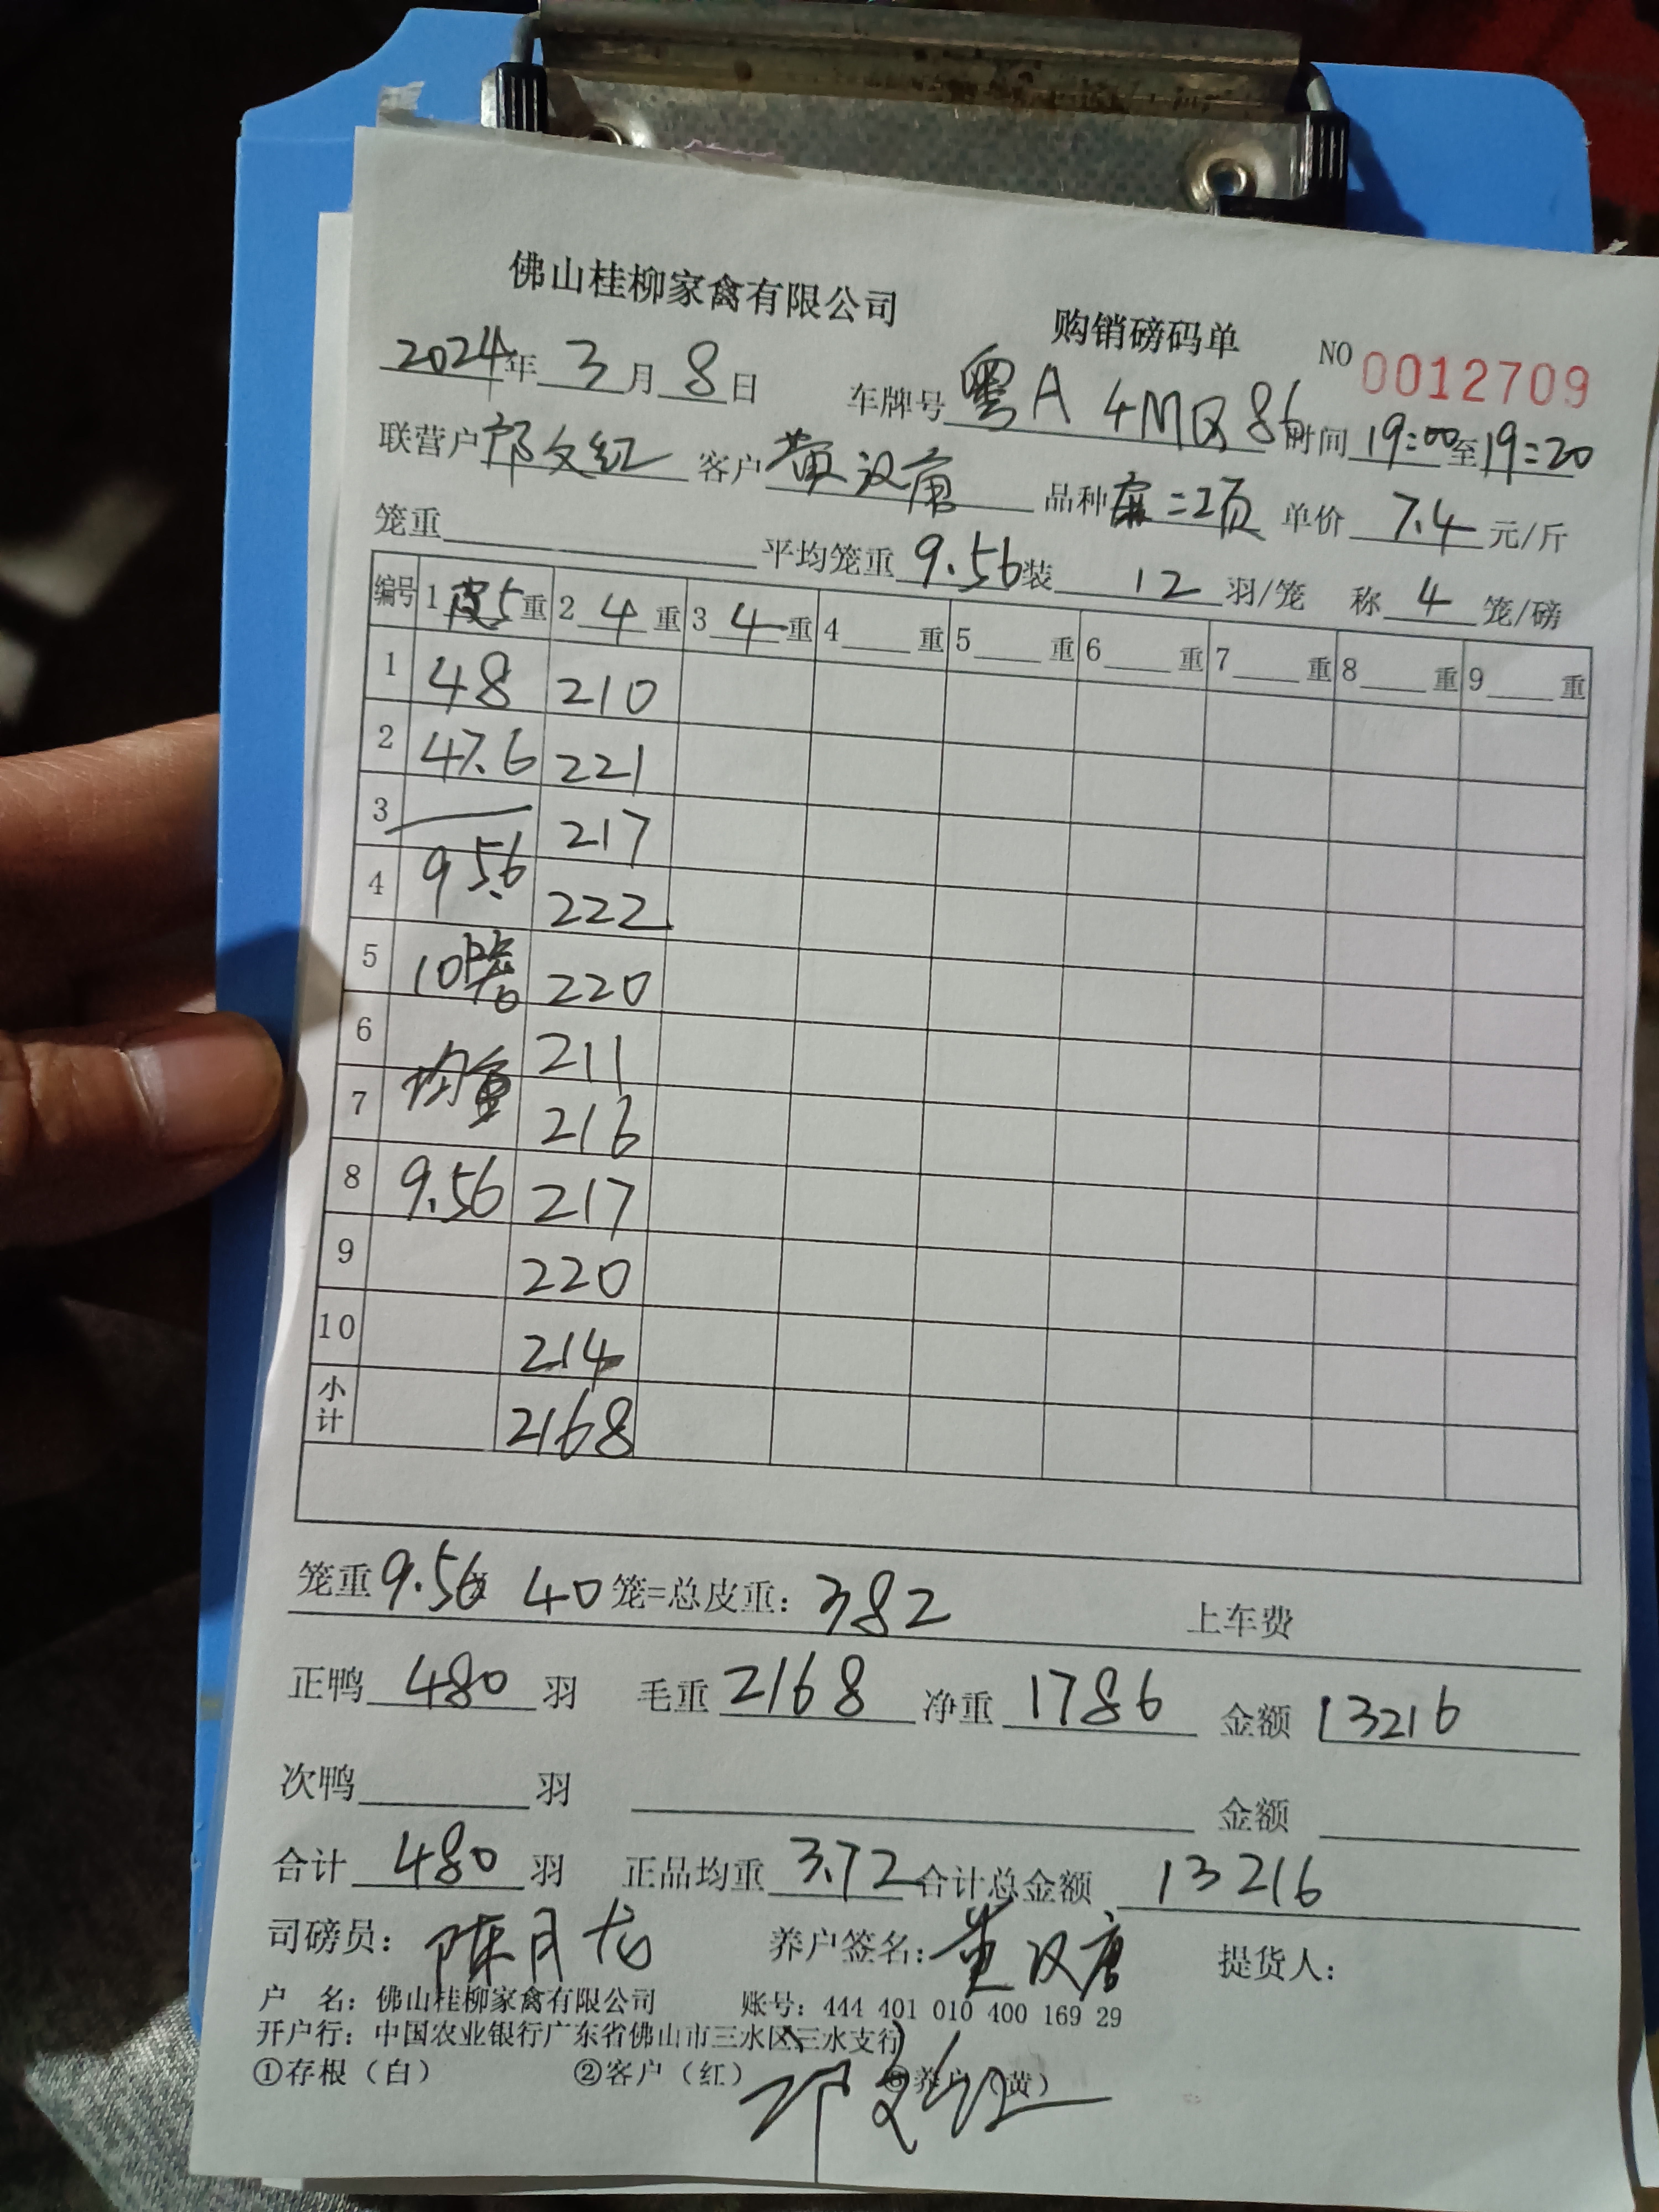 佛山桂柳家禽有限公司 购销磅码单 NO 0012709
2024年3月8日 车牌号 粤A 4MQ86 时间 19:00至19:20
联营户 邓文红 客户 黄汉唐 品种 二项 单价 7.4 元/斤
笼重 平均笼重 9.56 装 12 羽/笼 称 4 笼/磅
编号 1 皮5 重 2 4 重 3 4 重 4 重 5 重 6 重 7 重 8 重 9 重
1 48 210
2 47.6 221
3 217
4 95.6 222
5 10 220
6 211
7 均重 216
8 9.56 217
9 220
10 214
小计 2168
笼重 9.56x 40 笼=总皮重: 382 上车费
正鸭 480 羽 毛重 2168 净重 1786 金额 13216
次鸭 羽 金额
合计 480 羽 正品均重 3.72 合计总金额 13216
司磅员: 陈月龙 养户签名: 黄汉唐 提货人:
户 名: 佛山桂柳家禽有限公司 账号: 444 401 010 400 169 29
开户行: 中国农业银行广东省佛山市三水区三水支行
①存根(白) ②客户(红) ③养户(黄)
邓文红